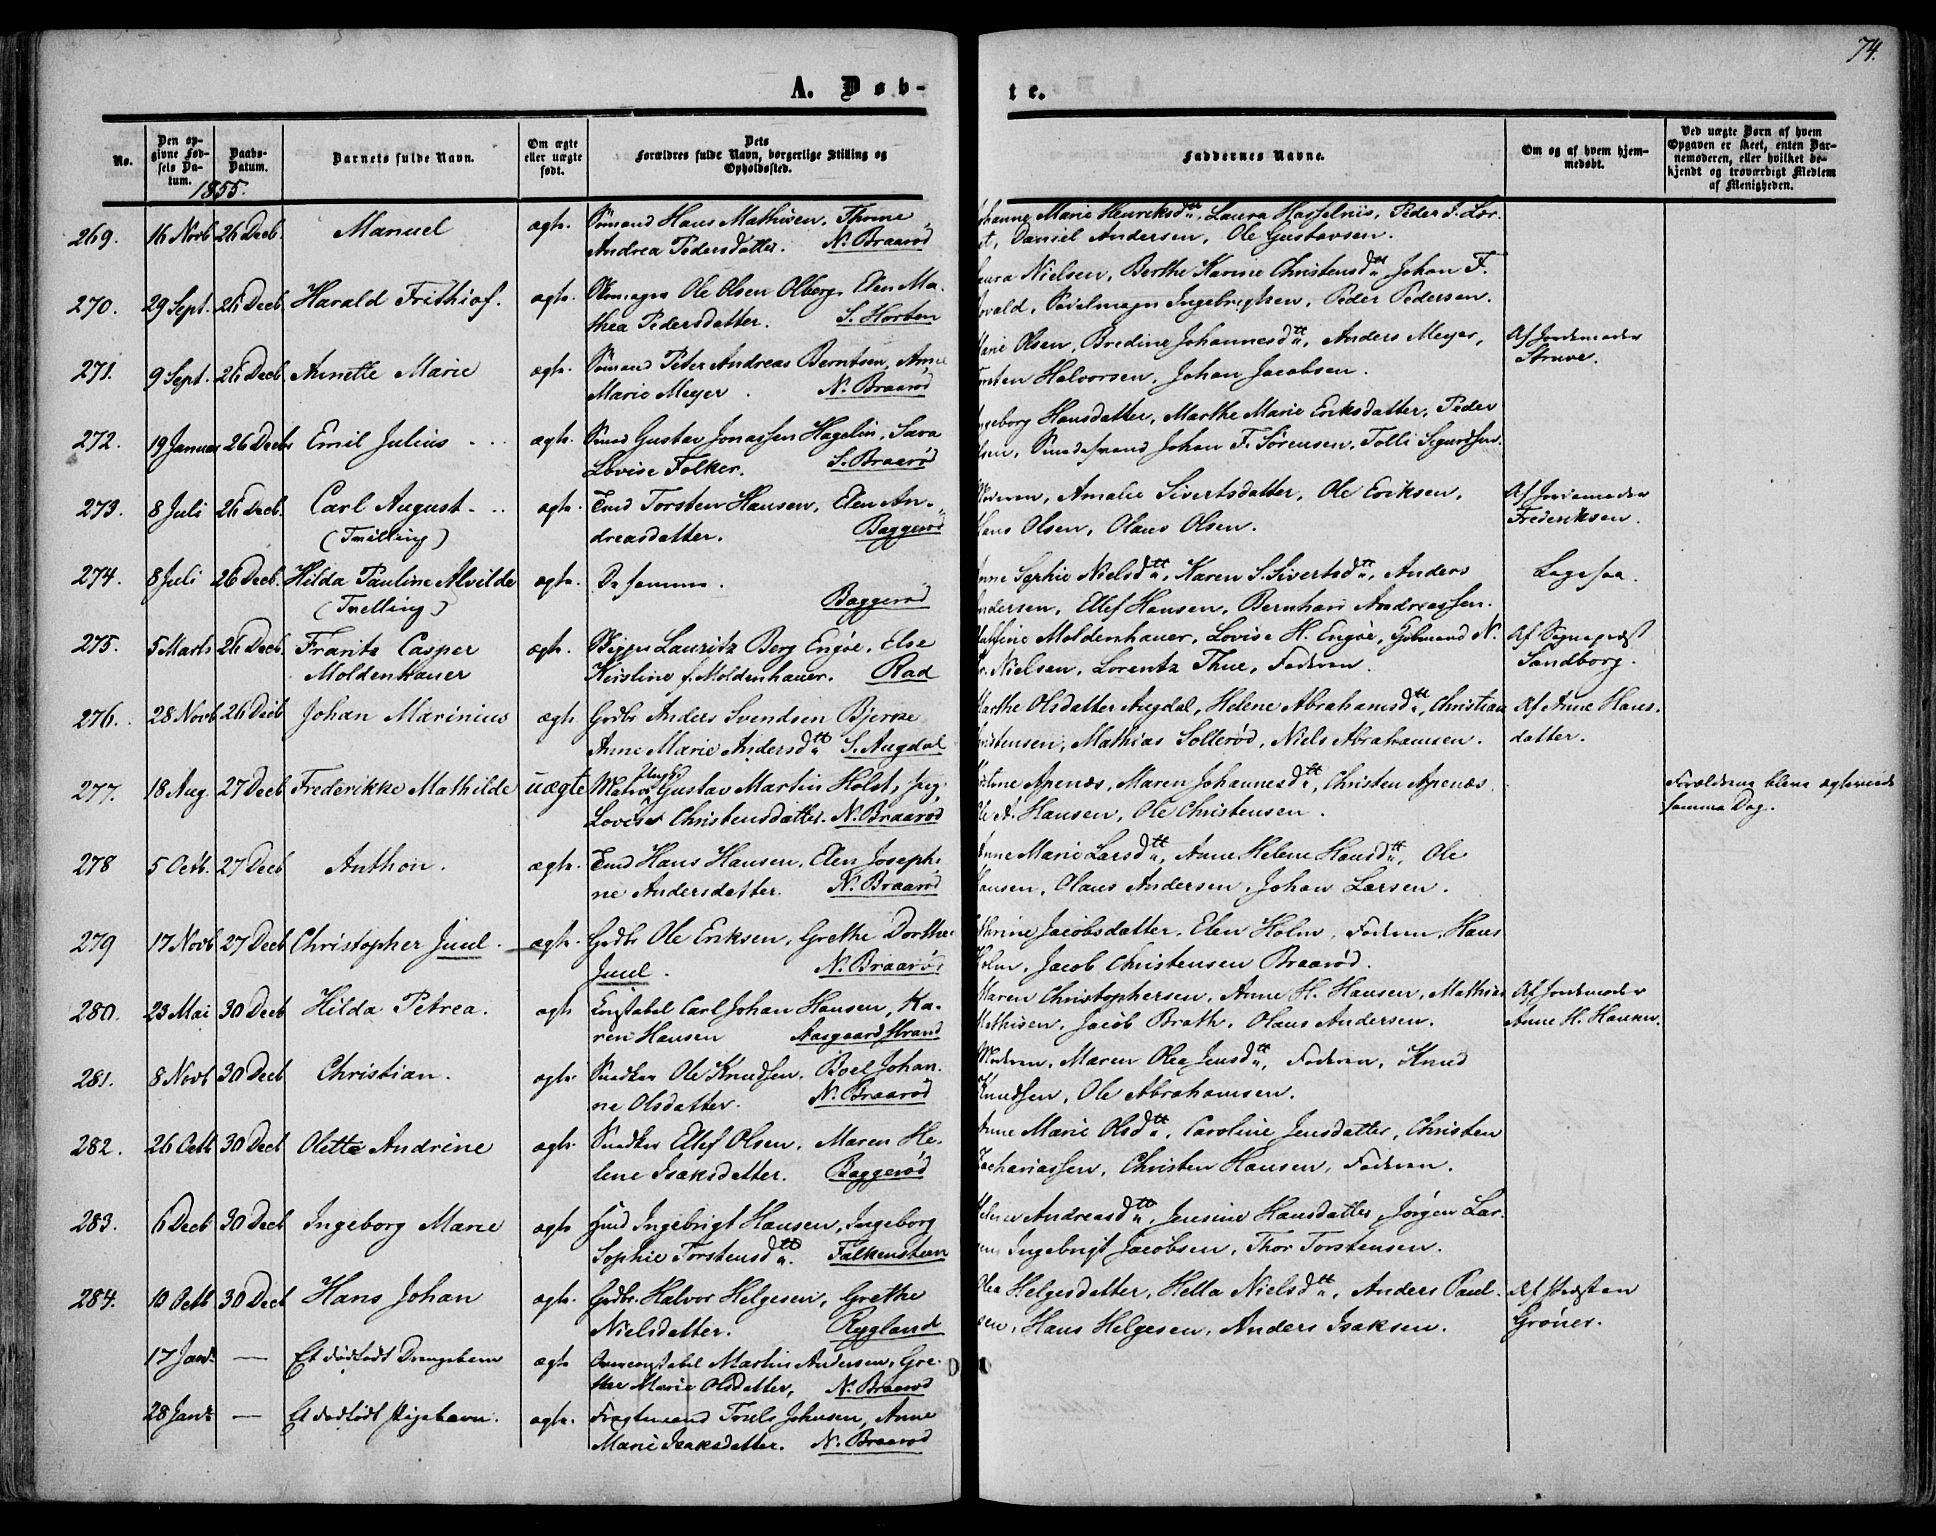 74.
A. Døb-
te.
No.
Den op-
givne Fød-
sels Da-
tum.
Daabs-
Datum.
Barnets fulde Navn.
Om ægte
eller uægte
født.
Dets
Forældres fulde Navn, borgerlige Stilling og
Opholdssted.
Faddernes Navne.
Om og af hvem hjem-
medøbt.
Ved uægte Børn af hvem
Opgaven er skeet, enten Bar-
nemoderen, eller hvilket be-
kjendt og troværdigt Medlem
af Menigheden.
1855.
269. 16 Novb 26 Decb. Manuel ægte. Sømand Hans Mathisen, Thorine
Andrea Pedersdatter. N. Braarød
Johanne Marie Henriksdtt, Laura Hasselniis, Peder J. Lor-
Daniel Andersen, Ole Gustavsen.
270. 29 Sept. 26 Decb Harald Frithiof. ægte. Skomager Ole Olsen Olberg, Elen Ma-
thea Pedersdatter. S. Horten
Laura Nielsen, Berthe Karine Christensdtt, Johan F.
Ingebrigtsen, Peder Pedersen.
271. 9 Sept. 26 Decb Annette Marie ægte. Sømand Peter Andreas Berntsen, Anne
Marie Meyer. N. Braarød
Marie Olsen, Bredine Johannesdtt, Anders Meyer,
Torsten Halvorsen, Johan Jacobsen.
Af Jordemoder
Struve.
272. 19 Januar 26 Decb Emil Julius ægte. Smed Gustav Jonassen Hagelin, Sara
Lovise Folker. S. Braarød
Ingeborg Hansdatter, Marthe Marie Eriksdatter, Peder
Olsen, Smedesvend Johan F. Sørensen, Tolli Sigurdsen.
273. 8 Juli 26 Decb. Carl August
(Tvilling)
ægte. Emd Torsten Hansen, Elen An-
dreasdatter. Baggerød
Moderen, Amalie Sivertsdatter, Ole Eriksen,
Hans Olsen, Olaus Olsen.
Af Jordemoder
Frederiksen.
274. 8 Juli 26 Decb. Hilda Pauline Alvilde
(Tvelling)
ægte. De samme.
Baggerød
Anne Sophie Nielsdtt, Karen S. Sivertsdtt, Anders
Andersen, Ellef Hansen, Bernhard Andreassen.
Ligesaa.
275. 5 Marts 26 Decb Frantz Casper
Moldenhauer
ægte. Skipper Lauritz Berg Engøe, Else
Kirstine f. Moldenhauer. Rad
Moldenhauer, Lovise H. Engøe, N.
Nielsen, Lorentz Thue, Faderen.
Af Sognepræst
Sandborg.
276. 28 Novb 26 Decb Johan Marinius ægte Grdbr Anders Svendsen Bjerke
Anne Marie Andersdtt. S. Augdal
Marthe Olsdatter Augdal, Helene Abrahamsdtt, Christian
Christensen, Mathias Sollerød, Niels Abrahamsen.
Af Anne Hans-
datter.
277. 18 Aug. 27 Decb Frederikke Mathilde uægte Gustav Martin Holst,
Lovise Christensdatter. N. Braarød
Apenæs, Maren Johannesdtt, Christen Apenæs
Ole A. Hansen, Ole Christensen.
Forældrene bleve ægteviede
samme Dag.
278 5 Octb. 27 Decb Anthon. ægte. Emd Hans Hansen, Elen Josephi-
ne Andersdatter. N. Braarød
Anne Marie Larsdtt, Anne Helene Hansdtt, Ole
Hansen, Olaus Andersen, Johan Larsen.
279 17 Novb 27 Decb Christopher Juul. ægte. Grdbr Ole Eriksen, Grethe Dorthea
Juul. N. Braarød
Jacobsdatter, Elen Holm, Faderen, Hans
Holm, Jacob Christensen Braarød.
280. 23 Mai 30 Decb Hilda Petrea. ægte Constabel Carl Johan Hansen, Ka-
ren Hansen Aasgaardstrand
Maren Christophersen, Anne H. Hansen, Mathias
Mathisen, Jacob Brath, Olaus Andersen.
Af Jordemoder
Anne H. Hansen.
281. 8 Novb 30 Decb Christian. ægte. Snedker Ole Knudsen, Boel Johan-
ne Olsdatter. N. Braarød
Moderen, Maren Olea Jensdtt, Faderen, Knud
Knudsen, Ole Abrahamsen.
282. 26 Octb 30 Decb Olette Andrine ægte. Snedker Ellef Olsen, Maren He-
lene Isaksdatter. Baggerød
Anne Marie Olsdtt, Caroline Jensdatter, Christen
Zachariassen, Christen Hansen, Faderen.
283. 6 Decb 30 Decb Ingeborg Marie ægte Ingebrigt Hansen, Ingeborg
Sophie Torstensdtt. Falkensteen
Helene Andreasdtt, Jensine Hansdatter, Jørgen Lar-
sen, Ingebrigt Jacobsen, Thor Torstensen.
284. 10 Octb 30 Decb Hans Johan ægte. Grdbr. Halvor Helgesen, Grethe
Nielsdatter. Rygland
Olea Helgesdatter, Hella Nielsdtt, Anders Paul-
sen, Hans Helgesen, Anders Isaksen.
Af Præsten
Grøner.
17 Janr. — Et dødfødt Drengebarn ægte Overconstabel Martin Andersen, Gre-
the Marie Olsdatter, N. Braarød
28 Janr — Et dødfødt Pigebarn. ægte. Fragtemand Truls Johnsen, Anne
Marie Isaksdatter. N. Braarød